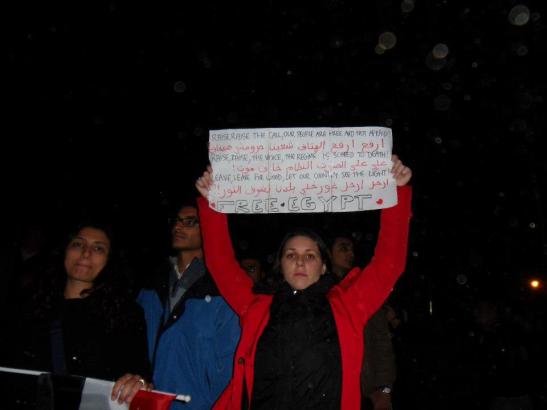 RAISE, RAISE THE CALL, OUR PEOPLE ARE FREE AND NOT AFRAID!
ارفع ارفع الهتاف شعبنا حر ومش
RAISE, RAISE, THE VOICE, THE REGIME IS SCARED TO DEATH!
علي علي الصوت النظام خايف موت!
LEAVE, LEAVE FOR GOOD, LET OUR COUNTRY SEE THE LIGHT!
ارحل ارحل غور خلي بلدنا تشوف النور!
FREE EGYPT